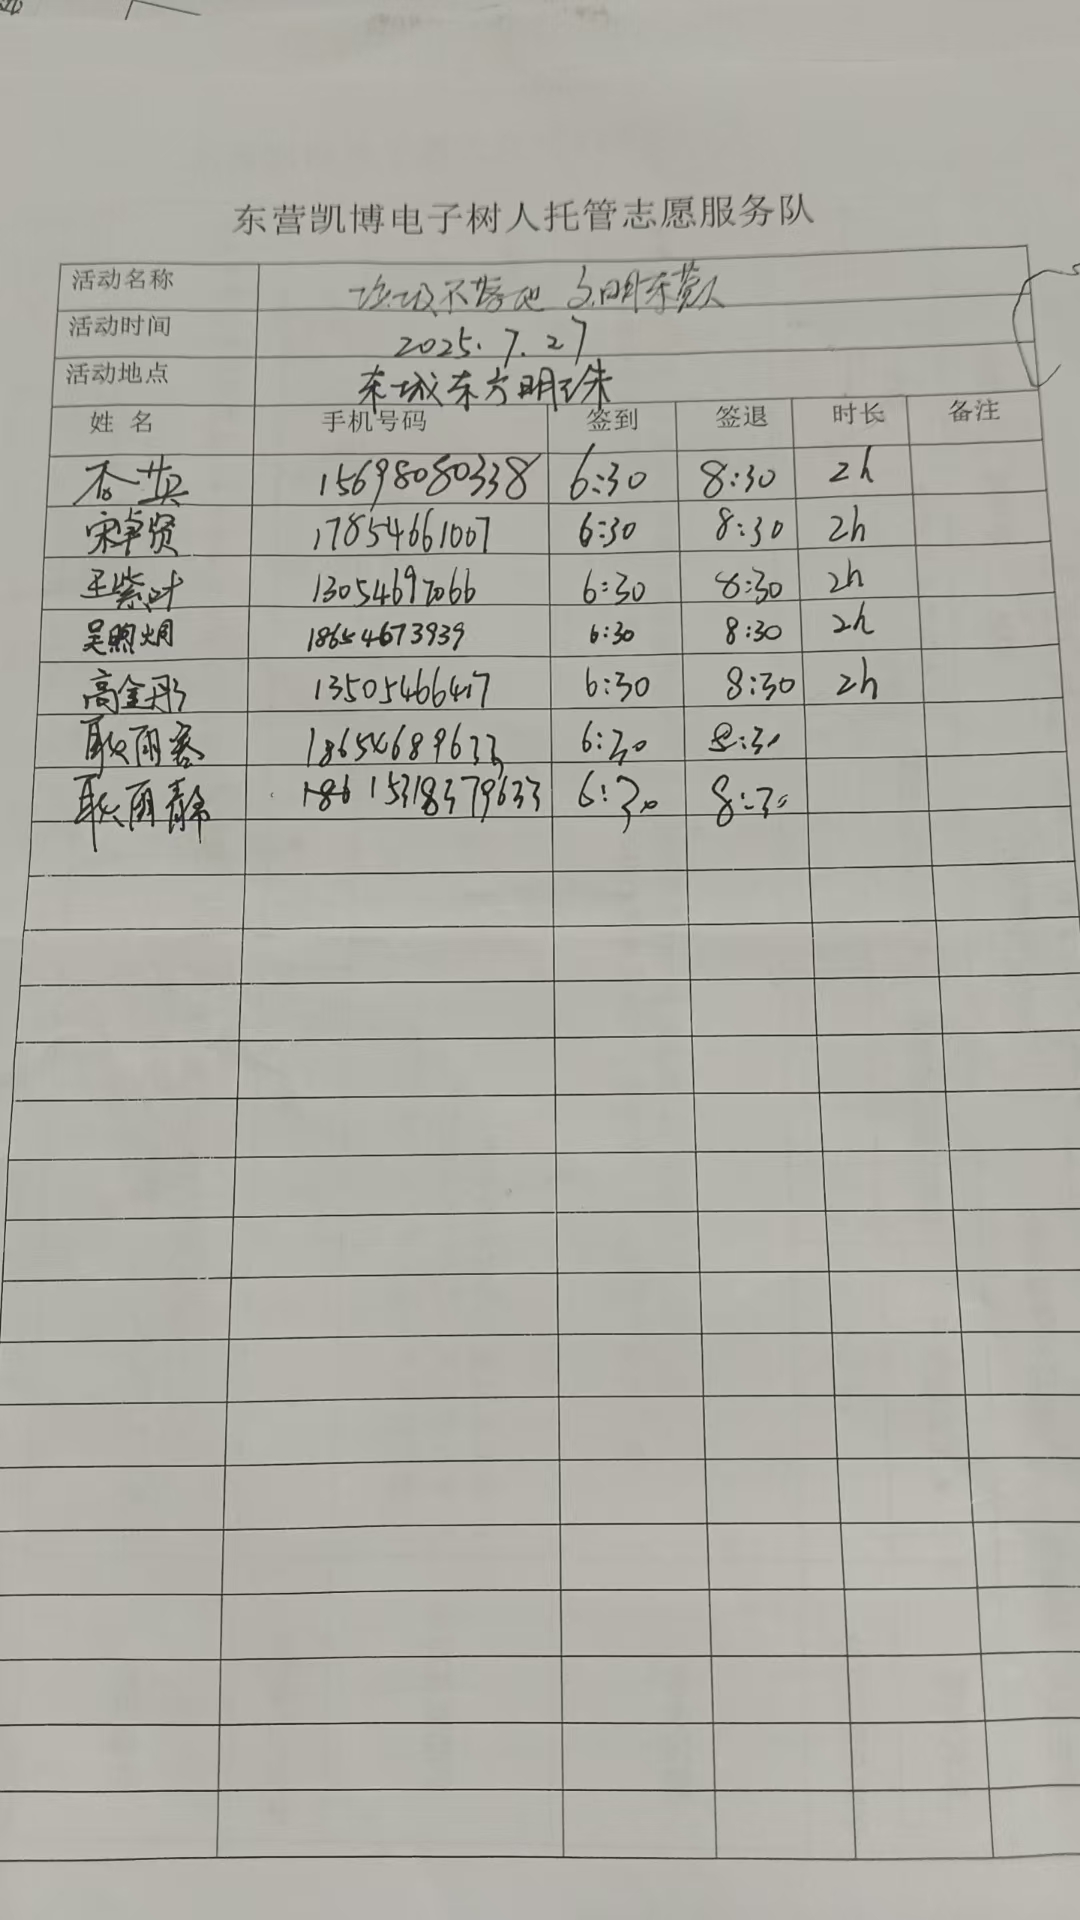 东营凯博电子树人托管志愿服务队
活动名称 垃圾不落地 文明东营人
活动时间 2025.7.27
活动地点 东城东方明珠
姓 名 手机号码 签到 签退 时长 备注
英 15698080338 6:30 8:30 2h
宋卓贤 17854661007 6:30 8:30 2h
王紫叶 13054697066 6:30 8:30 2h
吴煦炯 18654673939 6:30 8:30 2h
高金彤 13505466417 6:30 8:30 2h
耿雨容 18654689633 6:30 8:30
耿雨静 15318379633 6:30 8:30